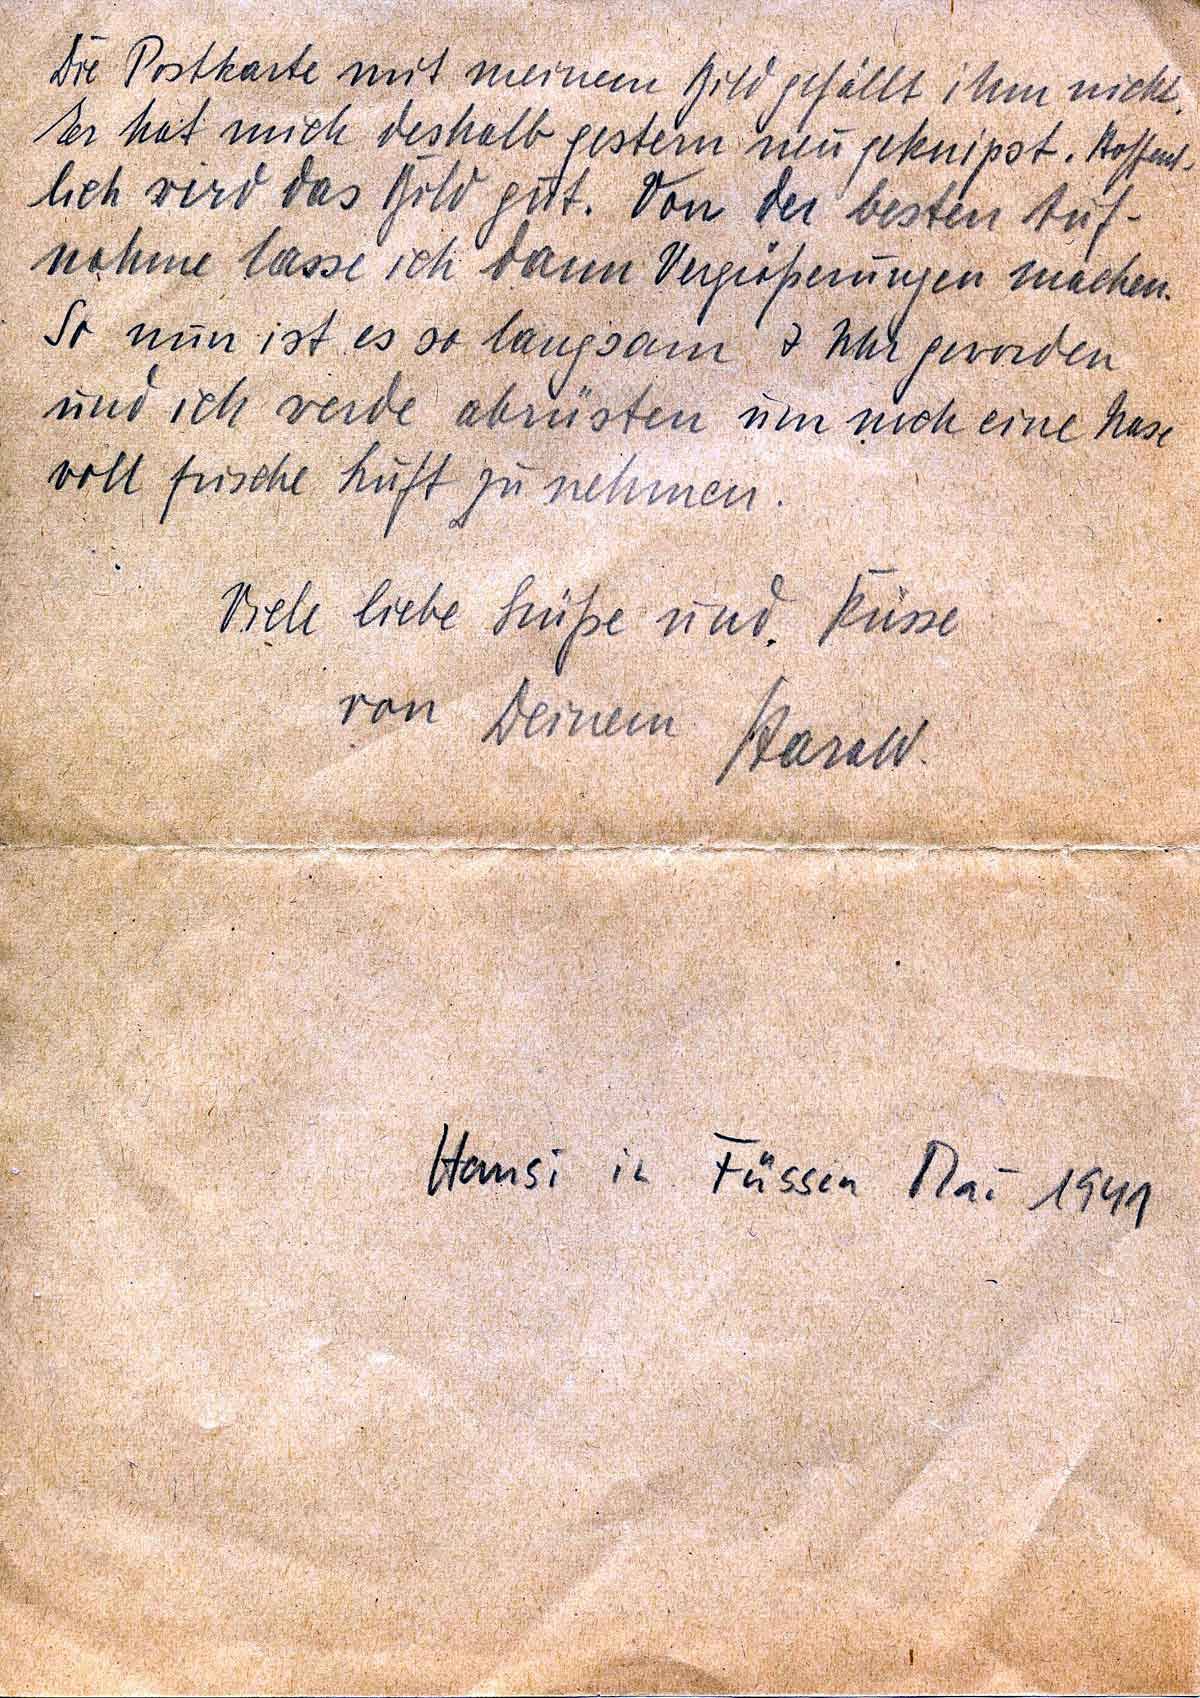 Die Postkarte mit meinem Bild gefällt ihm nicht.
Er hat mich deshalb gestern neu geknipst. Hoffent-
lich wird das Bild gut. Von der besten Auf-
nahme lasse ich dann Vergrößerungen machen.
So nun ist es so langsam 7 Uhr geworden
und ich werde abrüsten um noch eine Nase
voll frische Luft zu nehmen.
Viele liebe Grüße und Küsse
von Deinem Harald.
Hansi in Füssen Mai 1941